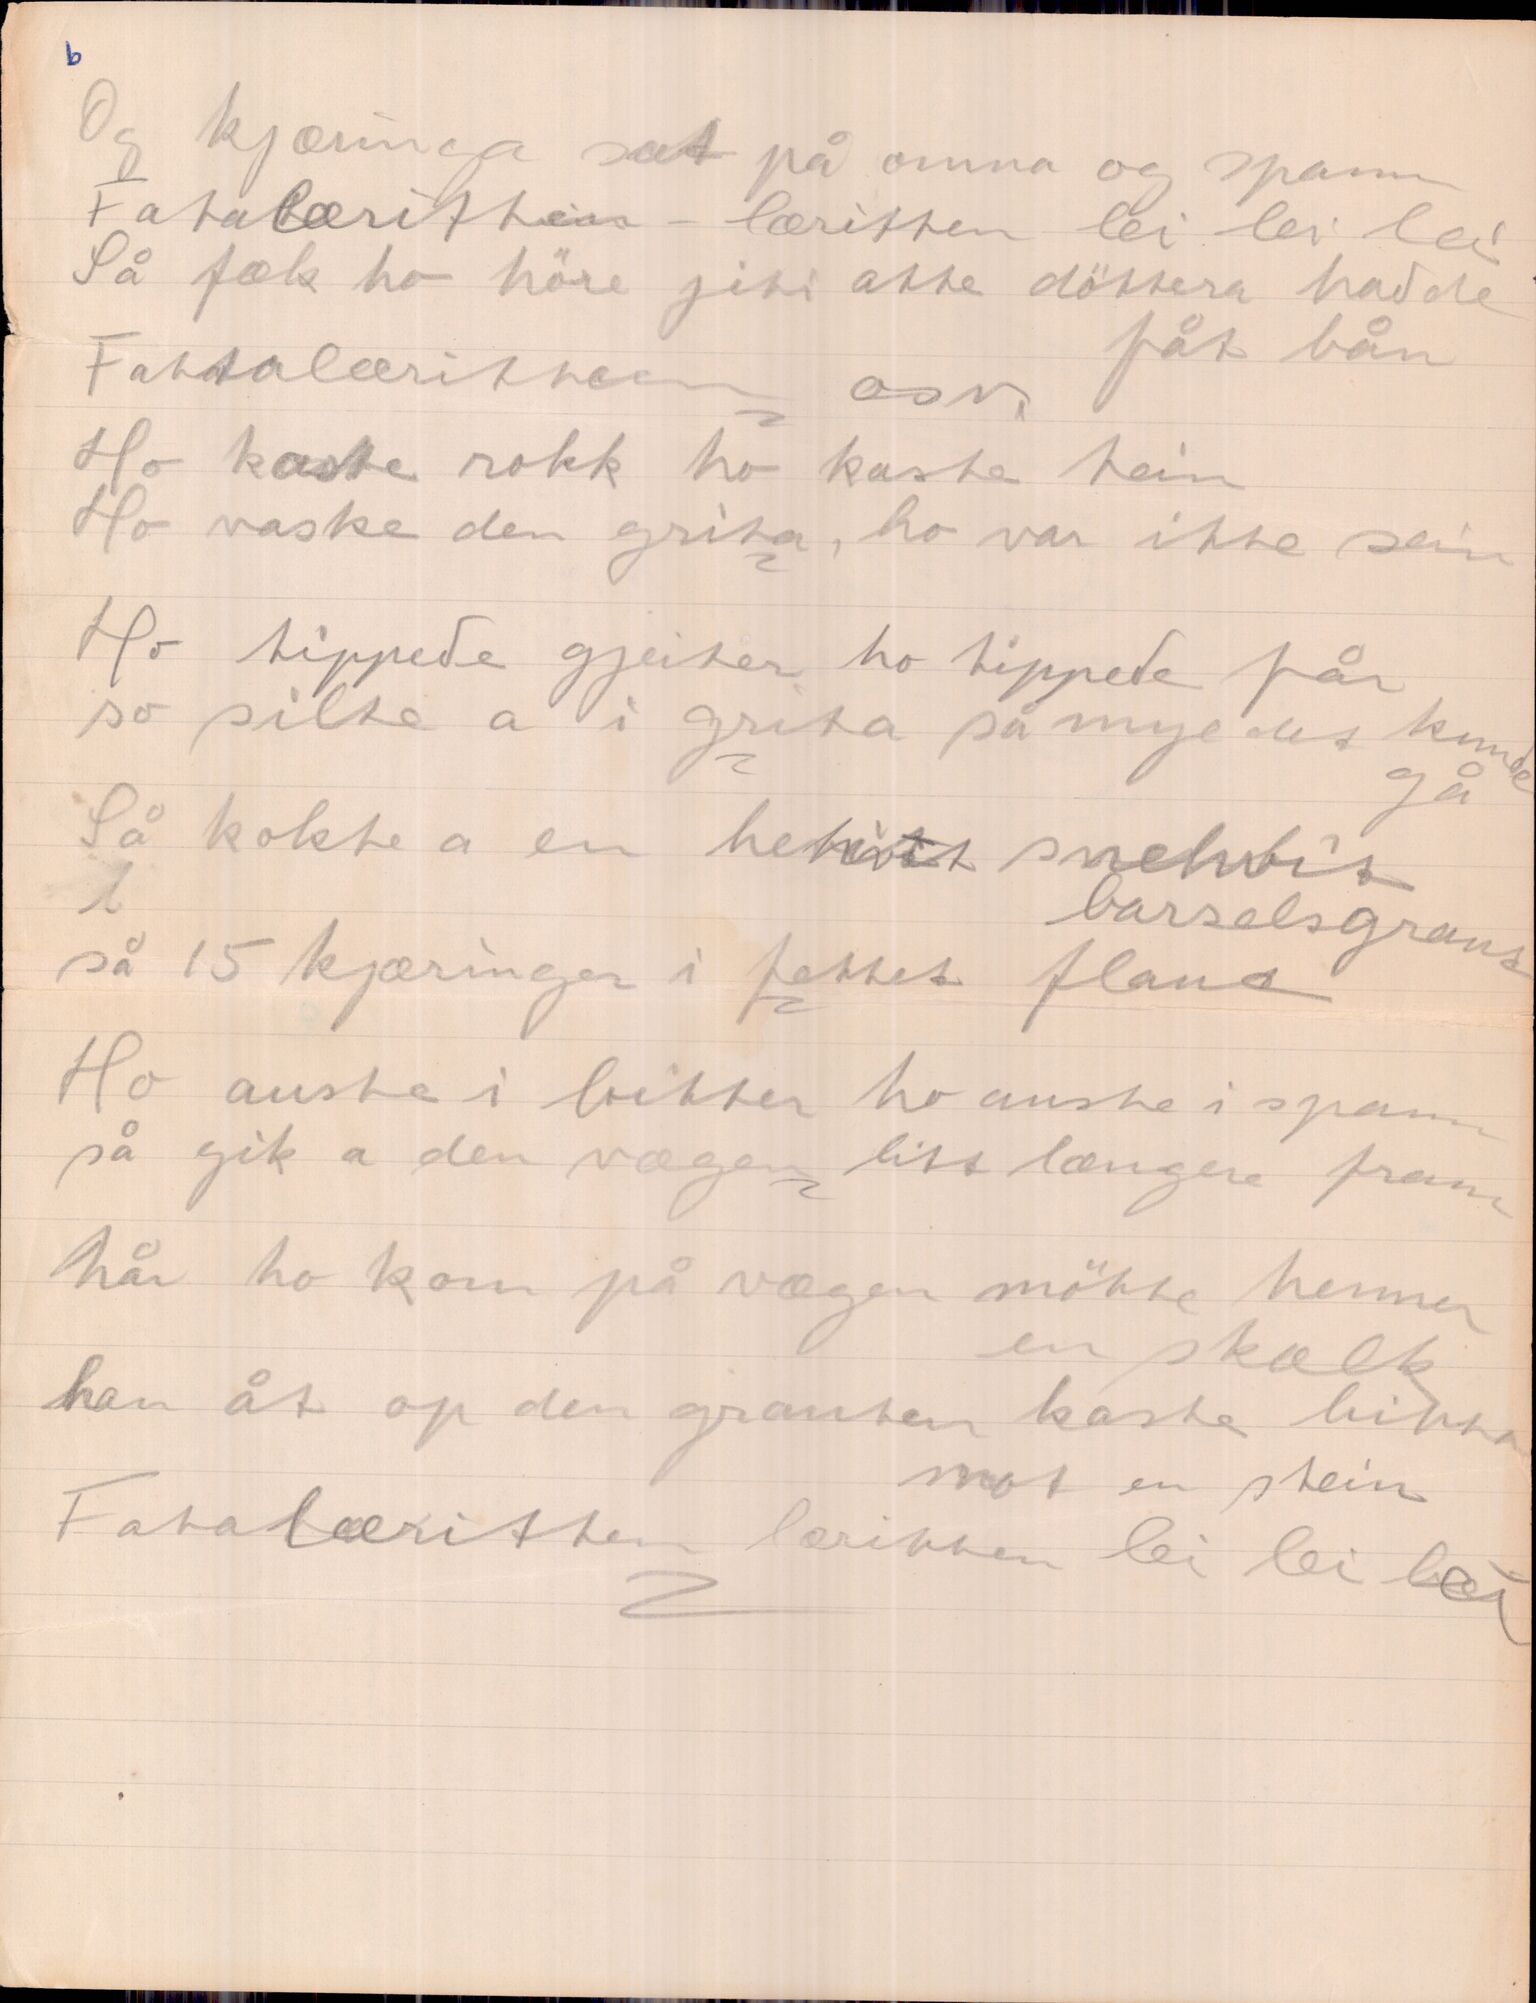 b
Og kjæringa sat på omna og spann
Fatalæritten - læritten lei lei lei
Så fæk ho höre jiti atte döttera hadde
fåt bån
Fattalæritteen osv.
Ho kaste rokk ho kaste tein
Ho vaske den grita, ho var itte sein
Ho tippede gjeiter ho tippede får
so silte a i grita så mye det kunde
gå
Så kokte a en snehvit
barselsgraut
så 15 kjæringer i fettet flaut
Ho auste i bitter ho auste i spann
så gik a den vægen litt længere fram
når ho kom på vægen mötte henner
en skælk
han åt op den grauten kaste bitta
mot en stein
Fatalæritten læritten lei lei lei